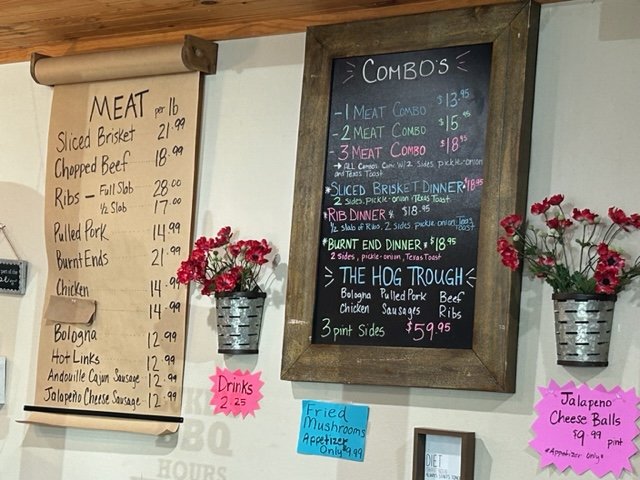 MEAT per lb
Sliced Brisket 21.99
Chopped Beef 18.99
Ribs - Full Slab 28.00
1/2 Slab 17.00
Pulled Pork 14.99
Burnt Ends 21.99
Chicken 14.99
14.99
Bologna 12.99
Hot Links 12.99
Andouille Cajun Sausage - 12.99
Jalapeno Cheese Sausage - 12.99
COMBO'S
- 1 MEAT COMBO $13.95
- 2 MEAT COMBO $15.95
- 3 MEAT COMBO $18.95
→ ALL Combos Come W/ 2 Sides, pickle-onion
and Texas Toast
*SLICED BRISKET DINNER* $18.95
2 sides, pickle-onion, Texas Toast
*RIB DINNER* $18.95
1/2 Slab of Ribs, 2 sides, pickle onion, Texas Toast
*BURNT END DINNER* $18.95
2 sides, pickle-onion, Texas Toast
THE HOG TROUGH
Bologna Pulled Pork Beef
Chicken Sausages Ribs
3 pint Sides $59.95
Drinks
2.25
Fried
Mushrooms
Appetizer
Only $9.99
Jalapeno
Cheese Balls
$9.99 pint
*Appetizer only*
BBQ
HOURS
DIET